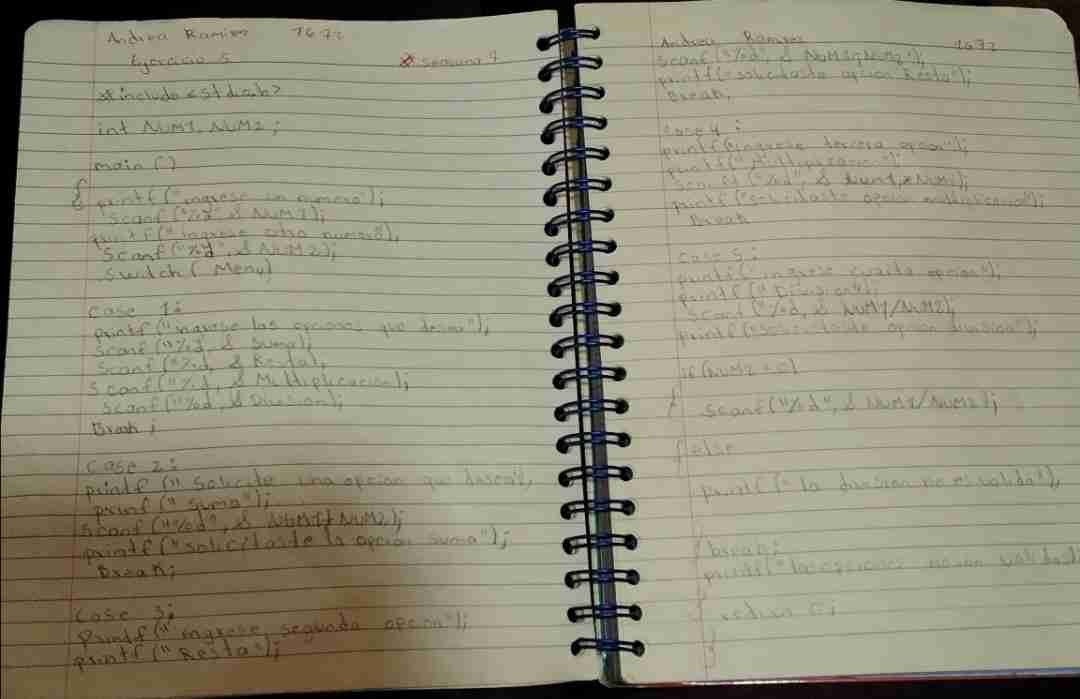 Andrea Ramirez 1672
Ejercicio 5 * Semana 7
#include <stdio.h>
int NUM1, NUM2;
main ()
{
printf ("ingrese un numero");
Scanf ("%d" & NUM1);
printf ("ingrese otro numero");
Scanf ("%d", & NUM2);
Switch ( Menu)
Case 1:
printf ("ingrese las opciones que desea");
Scanf ("%d, & Suma);
Scanf ("%d, & Resta);
Scanf ("%d, & Multiplicacion);
Scanf ("%d", & Division);
Break;
Case 2:
printf (" Solicite una opcion que desea");
printf (" Suma");
Scanf ("%d", & NUM1+NUM2);
printf ("Solicitaste la opcion Suma");
Break;
Case 3;
Printf ("ingrese segunda opcion");
printf ("Resta");
Andrea Ramirez 1672
Scanf ("%d", & NUM1-NUM2");
printf ("Solicitaste opcion Resta");
Break;
Case 4 :
printf (ingrese tercera opcion");
printf ("Multiplicacion");
Scanf ("%d", & Num1*NUM2);
printf ("Solicitaste opcion multiplicacion");
Break
Case 5 :
printf ("ingrese cuarta opcion");
printf (" Division");
Scanf ("%d, & NUM1/NUM2);
printf ("Solicitaste opcion division");
if (NUM2 = 0)
{
Scanf ("%d", & NUM1/NUM2);
}else
printf (" la division no es valida");
break;
printf ("las opciones no son validas
return 0;
}